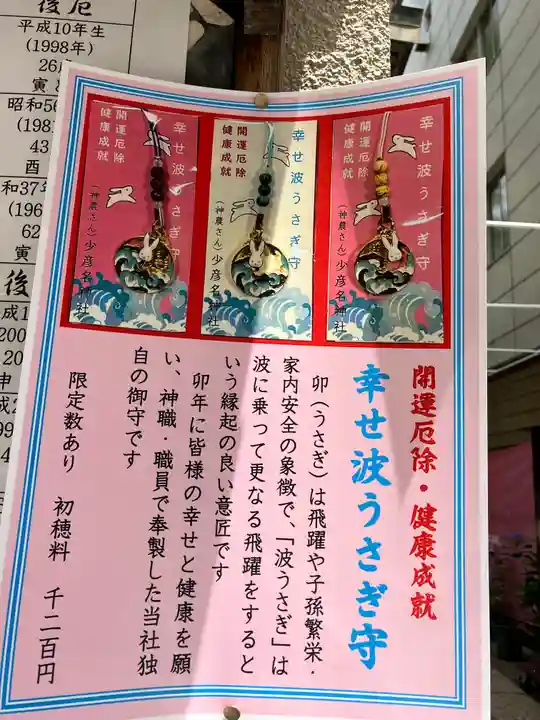 後厄
平成10年生
(1998年)
26
寅
昭和56
(198
43
酉
和37年
(196
62
寅
後
開運厄除
健康成就
幸せ波うさぎ守
(神農さん)少彦名神社
開運厄除
健康成就
幸せ波うさぎ守
(神農さん)少彦名神社
開運厄除
健康成就
幸せ波うさぎ守
(神農さん)少彦名神社
開運厄除・健康成就
幸せ波うさぎ守
卯(うさぎ)は飛躍や子孫繁栄・
家内安全の象徴で、「波うさぎ」は
波に乗って更なる飛躍をすると
いう縁起の良い意匠です
卯年に皆様の幸せと健康を願
い、神職・職員で奉製した当社独
自の御守です
限定数あり 初穂料 千二百円